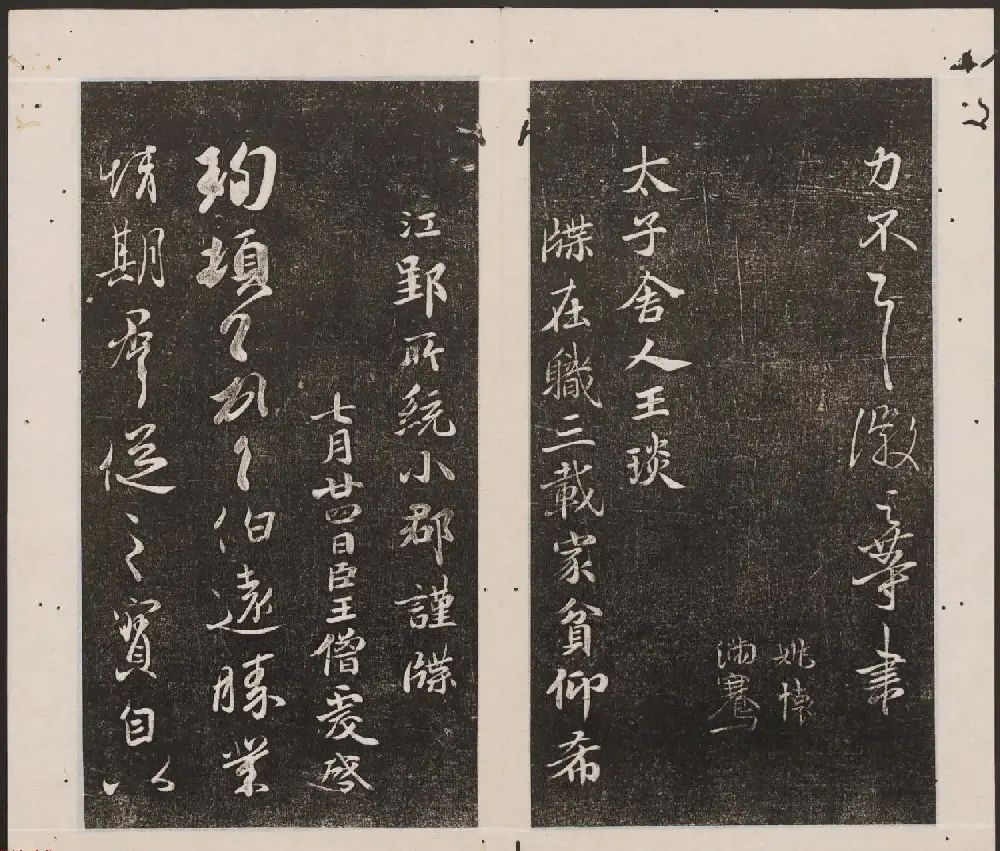 力不一一徽之等書
姚懷
滿騫
太子舍人王琰
牒在職三載家貧仰希
江郢所統小郡謹牒
七月廿四日臣王僧虔啓
珣頓首頓首伯遠勝業
情期羣從之寶自以